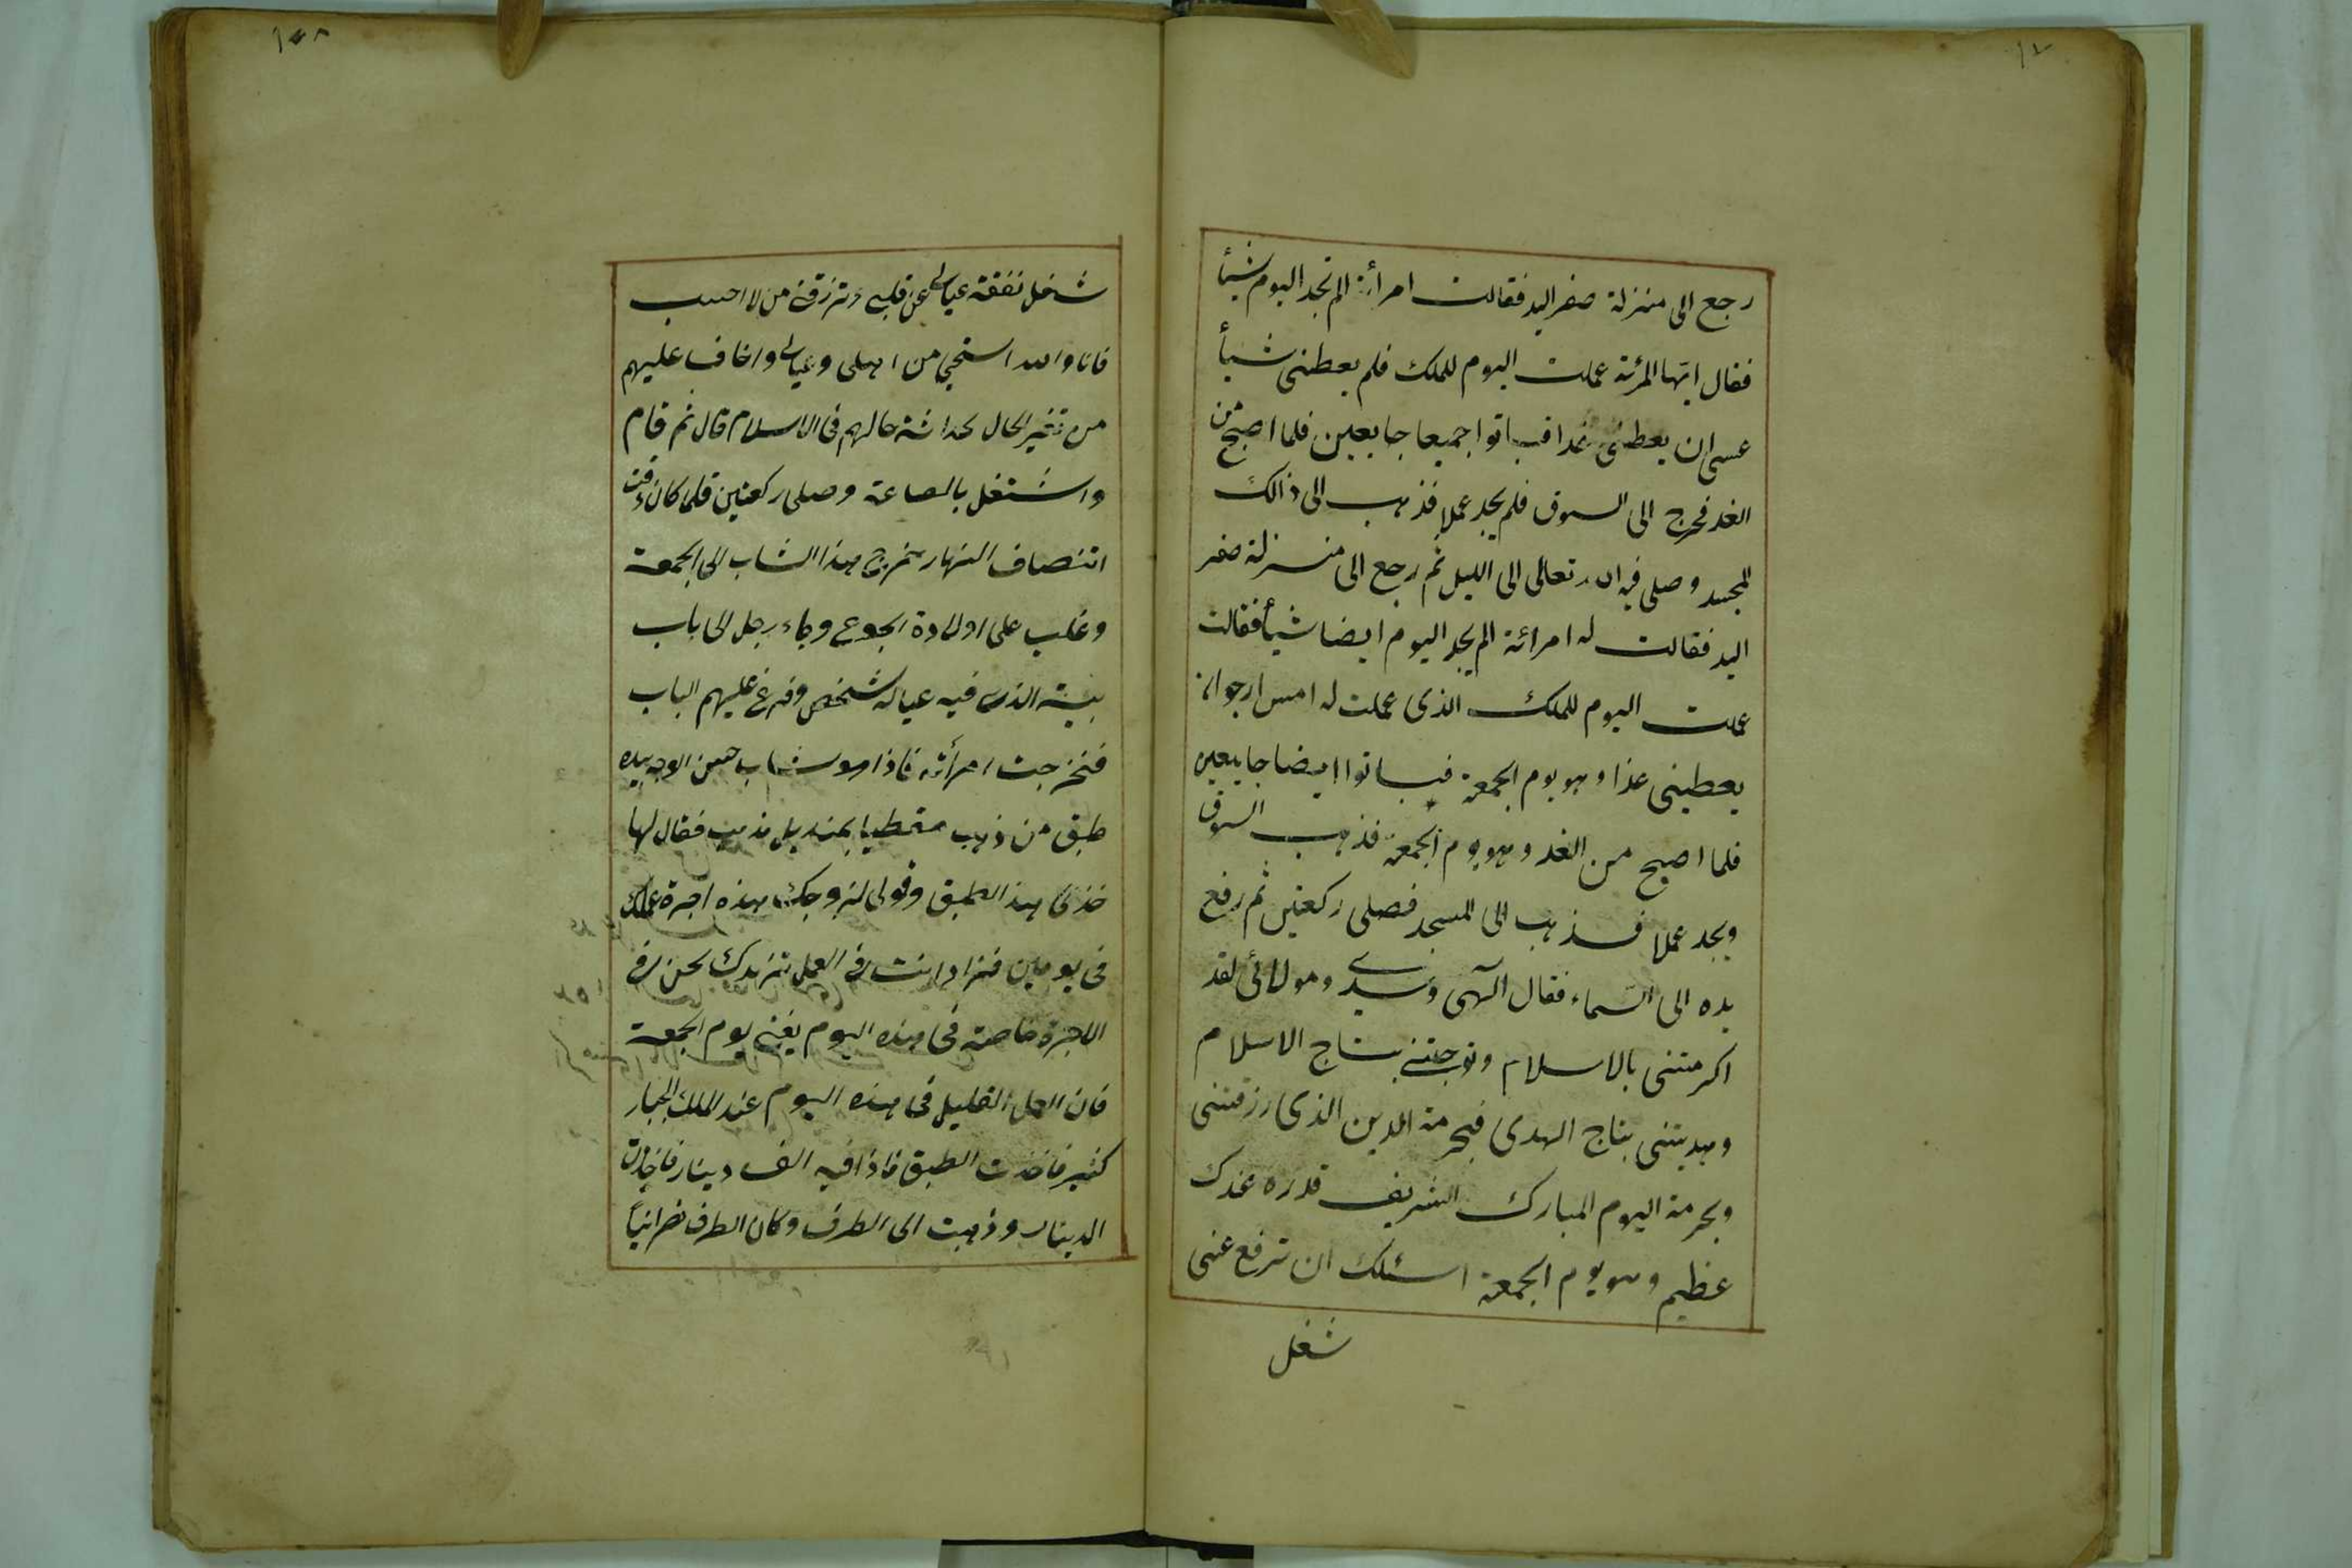 رجع الى منزلة صفر اليد فقالت امرأته الم تجد اليوم شيأ
فقال ايتها المرئة عملت اليوم للملك فلم يعطنى شيأ
عسى ان يعطنى غدا فباتوا جميعا جايعين فلما اصبح من
الغد فخرج الى السوق فلم يجد عملا فذهب الى ذالك
المسجد وصلى فيه الله تعالى الى الليل ثم رجع الى منزلة صفر
اليد فقالت له امرائة الم يجد اليوم ايضا شيأ فقالت
عملت اليوم للملك الذى عملت له امس ارجو ان
يعطينى غدا وهو يوم الجمعة فباتوا ايضا جايعين
فلما اصبح من الغد وهو يوم الجمعة فذهب السوق
ويجد عملا فذهب الى المسجد فصلى ركعتين ثم رفع
يده الى السماء فقال آلهى وسيدى ومولائى لقد
اكرمتنى بالاسلام وتوجتنى بتاج الاسلام
وهديتنى بتاج الهدى فبحرمة الدين الذى رزقتنى
وبحرمة اليوم المبارك الشريف قدره عندك
عظيم وهو يوم الجمعة اسئلك ان ترفع عنى
شغل
١٥٨
شغل نفقة عيالى عن قلبى وترزقنى من لا احسب
فانا والله استحيى من اهلى وعيالى واخاف عليهم
من تغير الحال لحداثة حالهم فى الاسلام قال ثم قام
واشتغل بالصاعة وصلى ركعتين فلما كان وقت
انتصاف النهار خرج هذا الشاب الى الجمعة
وغلب على اولادة الجوع وجاء رجل الى باب
بيته الذى فيه عياله شخص وقرع عليهم الباب
فخرجت امرأته فاذا هو شاب حسن الوجه بيده
طبق من ذهب مغطيا بمنديل مذهب فقال لها
خذى هذا الطبق وقولى لزوجك هذه اجرة عملك
فى يومين فزاد انت فى العمل تزيدك نحن فى
الاجرة خاصة فى هذه اليوم يعنى يوم الجمعة
فان العمل القليل فى هذه اليوم عند الملك الجبار
كثير فاخذت الطبق فاذا فيه الف دينار فاخذت
الدينار وذهبت الى الطرف وكان الطرف نصرانياً